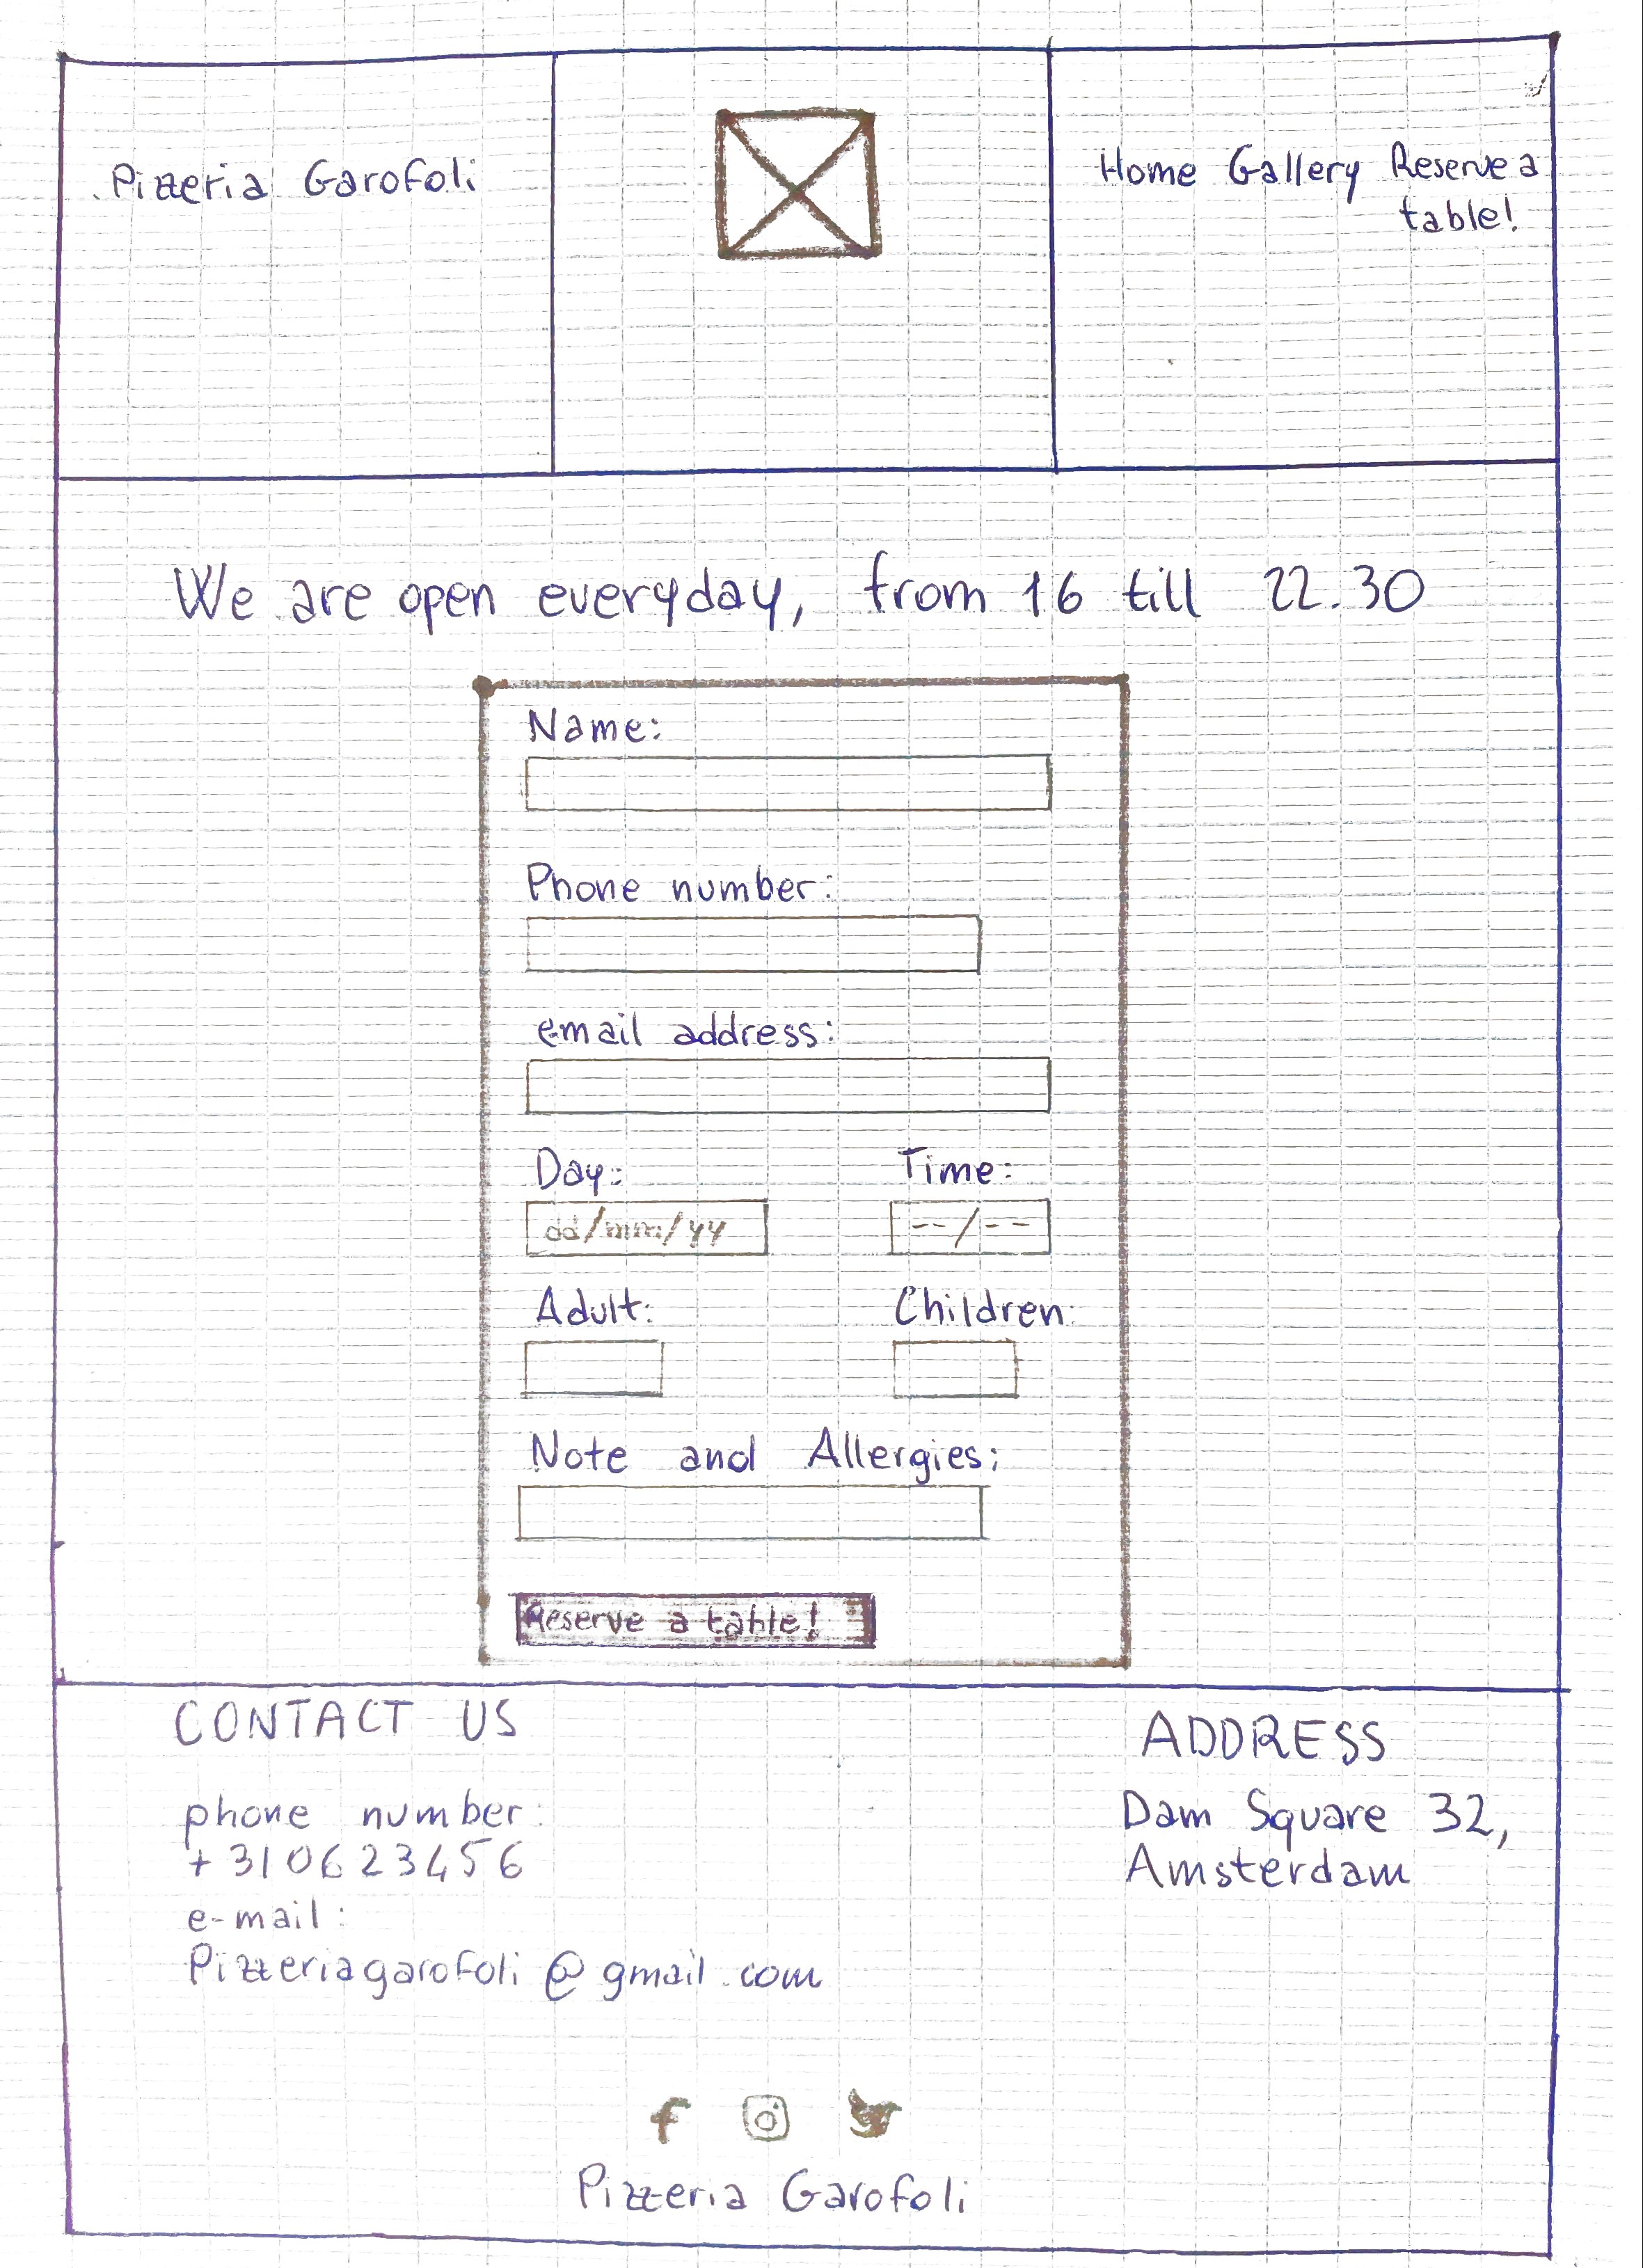 Pizzeria Garofoli
Home Gallery Reserve a
table!
We are open everyday, from 16 till 22.30
Name:
Phone number:
email address:
Day: Time:
dd/mm/yy --/--
Adult: Children:
Note and Allergies:
Reserve a table!
CONTACT US
ADDRESS
phone number:
+310623456
e-mail:
Pizzeriagarofoli@gmail.com
Dam Square 32,
Amsterdam
f
Pizzeria Garofoli